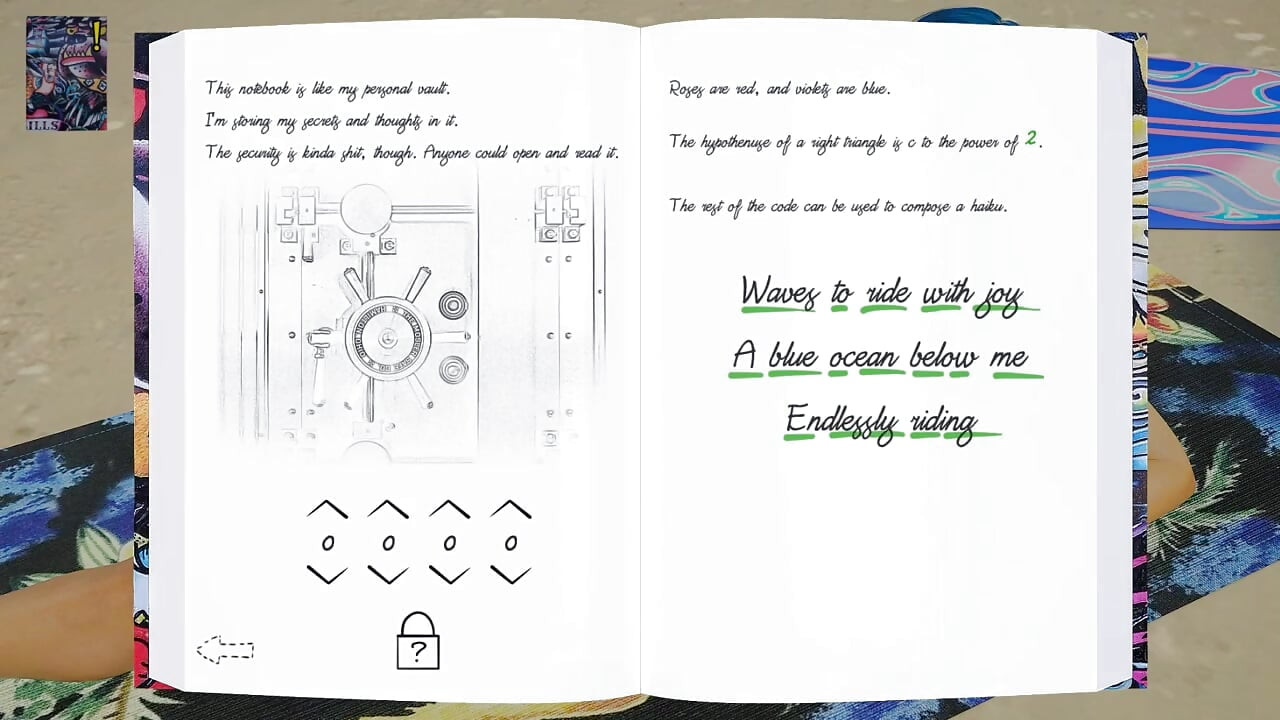 ILLS
This notebook is like my personal vault.
I'm storing my secrets and thoughts in it.
The security is kinda shit, though. Anyone could open and read it.
0 0 0 0
?
Roses are red, and violets are blue.
The hypothenuse of a right triangle is c to the power of 2.
The rest of the code can be used to compose a haiku.
Waves to ride with joy
A blue ocean below me
Endlessly riding